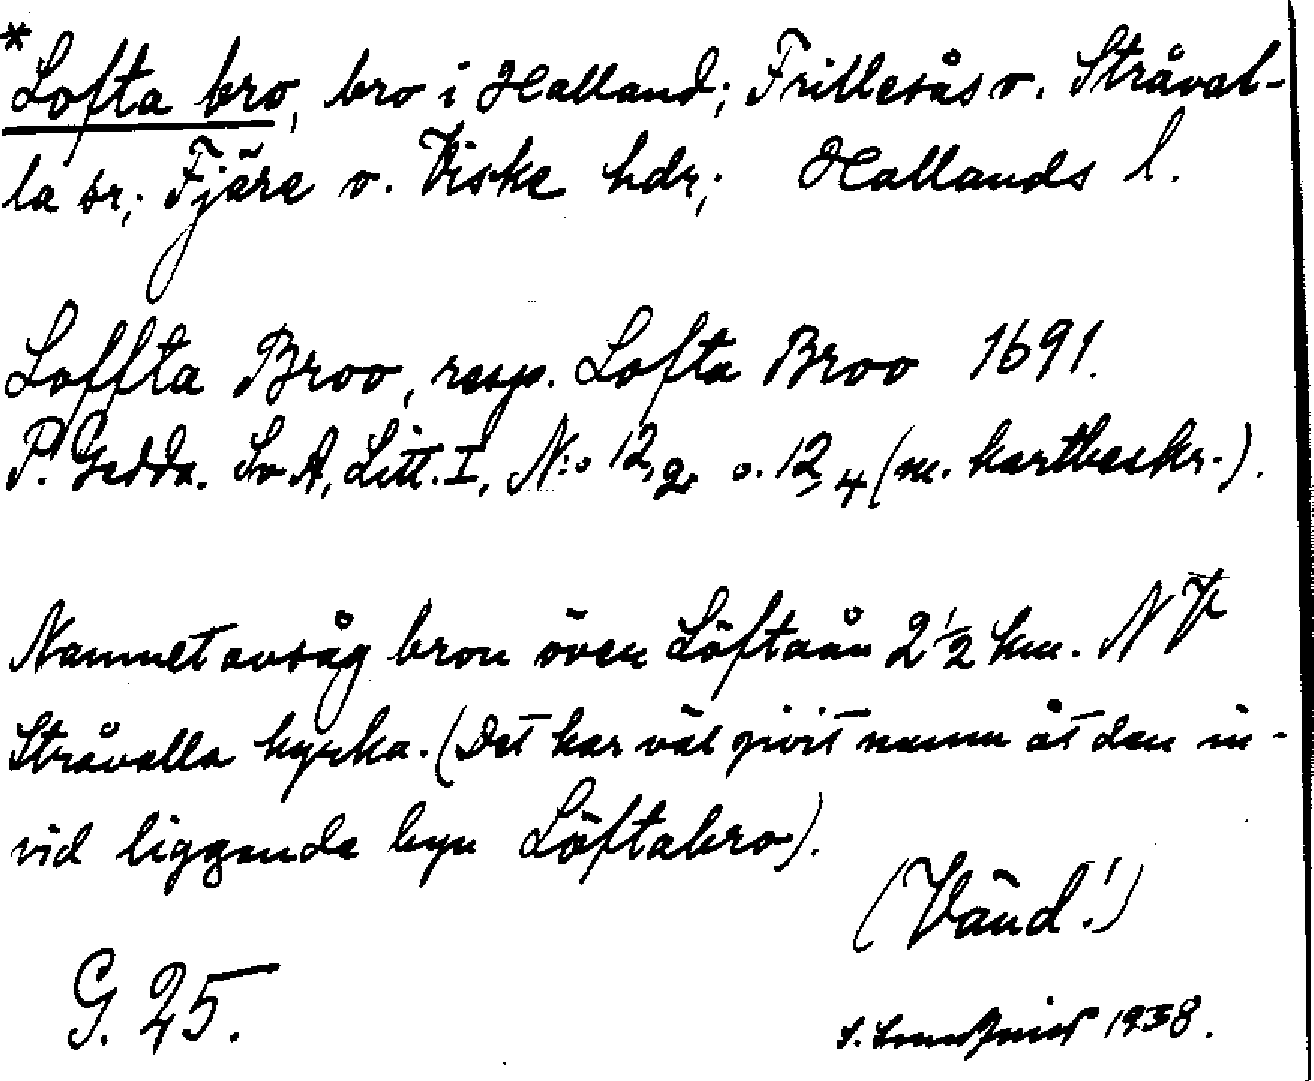 *Lofta bro, bro i Halland; Frillesås o. Stråval-
la sr; Fjäre o. Viske hdr; Hallands l.
Loffta Broo, resp. Lofta Broo 1691.
P. Gedda. Sv A, Litt. I, N:o 12,2, o. 12,4 (m. kartbeskr.).
Namnet avsåg bron över Löftaån 2 1/2 km. NV
Stråvalla kyrka. (Det har väl givit namn åt den in-
vid liggande byn Löftabro).
(Vänd!)
G. 25.
S. 1938.